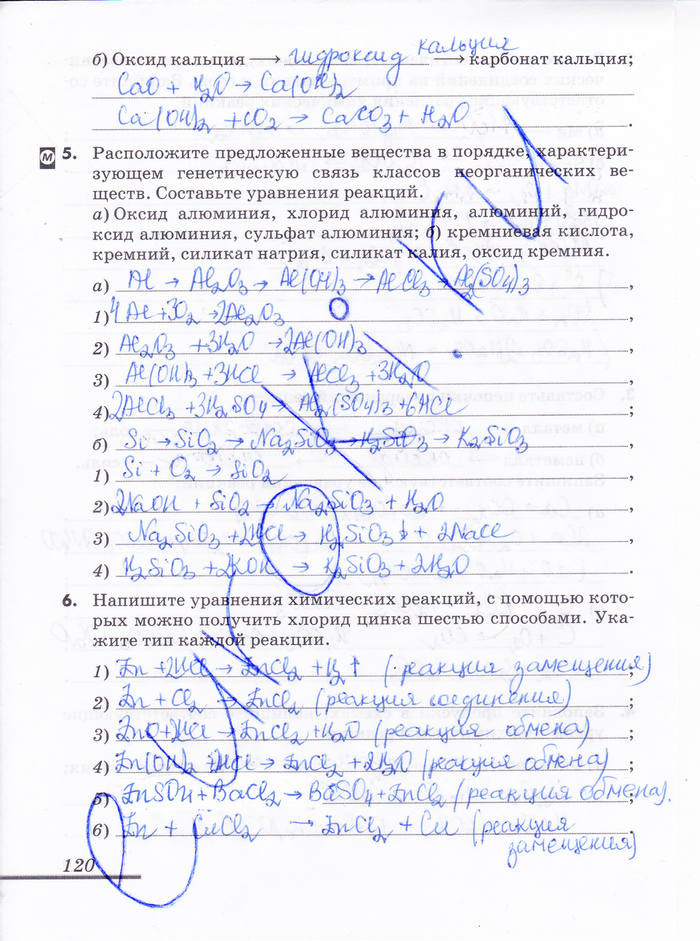 б) Оксид кальция → гидроксид кальция → карбонат кальция;
CaO + H₂O → Ca(OH)₂
Ca(OH)₂ + CO₂ → CaCO₃ + H₂O.
м 5. Расположите предложенные вещества в порядке, характери-
зующем генетическую связь классов неорганических ве-
ществ. Составьте уравнения реакций.
а) Оксид алюминия, хлорид алюминия, алюминий, гидро-
ксид алюминия, сульфат алюминия; б) кремниевая кислота,
кремний, силикат натрия, силикат калия, оксид кремния.
а) Al → Al₂O₃ → Al(OH)₃ → AlCl₃ → Al₂(SO₄)₃,
1) 4Al + 3O₂ → 2Al₂O₃,
2) Al₂O₃ + 3H₂O → 2Al(OH)₃,
3) Al(OH)₃ + 3HCl → AlCl₃ + 3H₂O,
4) 2AlCl₃ + 3H₂SO₄ → Al₂(SO₄)₃ + 6HCl;
б) Si → SiO₂ → Na₂SiO₃ → H₂SiO₃ → K₂SiO₃,
1) Si + O₂ → SiO₂,
2) 2NaOH + SiO₂ → Na₂SiO₃ + H₂O,
3) Na₂SiO₃ + 2HCl → H₂SiO₃↓ + 2NaCl,
4) H₂SiO₃ + 2KOH → K₂SiO₃ + 2H₂O.
6. Напишите уравнения химических реакций, с помощью кото-
рых можно получить хлорид цинка шестью способами. Ука-
жите тип каждой реакции.
1) Zn + 2HCl → ZnCl₂ + H₂↑ (реакция замещения);
2) Zn + Cl₂ → ZnCl₂ (реакция соединения);
3) ZnO + 2HCl → ZnCl₂ + H₂O (реакция обмена);
4) Zn(OH)₂ + 2HCl → ZnCl₂ + 2H₂O (реакция обмена);
5) ZnSO₄ + BaCl₂ → BaSO₄ + ZnCl₂ (реакция обмена);
6) Zn + CuCl₂ → ZnCl₂ + Cu (реакция
замещения).
120